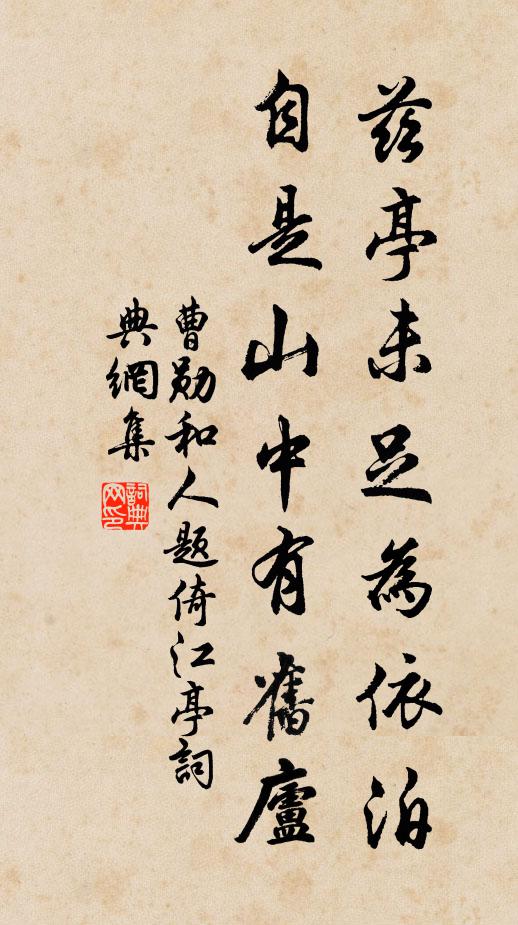 茲亭未足為依泊
自是山中有舊廬
曹勛和人題倚江亭詞
典網集
詞典
网印